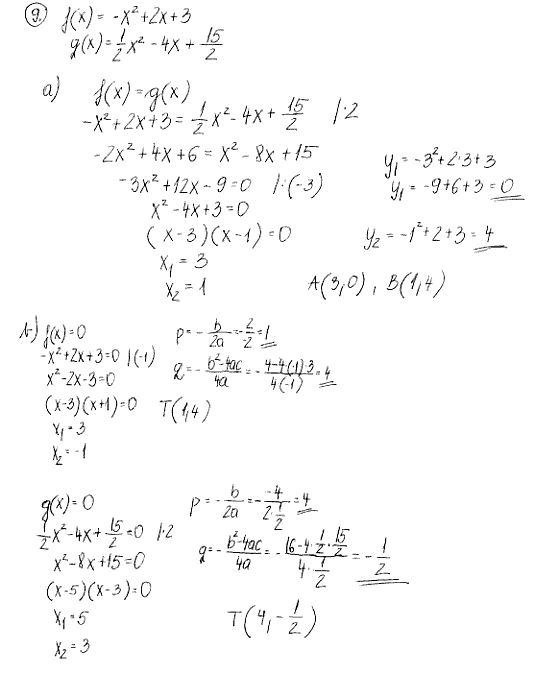 9. f(x) = -x² + 2x + 3
g(x) = 1/2 x² - 4x + 15/2
a) f(x) = g(x)
-x² + 2x + 3 = 1/2 x² - 4x + 15/2 /·2
-2x² + 4x + 6 = x² - 8x + 15
-3x² + 12x - 9 = 0 /:(-3)
x² - 4x + 3 = 0
(x-3)(x-1) = 0
x₁ = 3
x₂ = 1
y₁ = -3² + 2·3 + 3
y₁ = -9 + 6 + 3 = 0
y₂ = -1² + 2 + 3 = 4
A(3,0), B(1,4)
b) f(x) = 0
-x² + 2x + 3 = 0 /·(-1)
x² - 2x - 3 = 0
(x-3)(x+1) = 0
x₁ = 3
x₂ = -1
p = -b/2a = -2/2 = 1
q = -(b²-4ac)/4a = -(4-4·(-1)·3)/4(-1) = 4
T(1,4)
g(x) = 0
1/2 x² - 4x + 15/2 = 0 /·2
x² - 8x + 15 = 0
(x-5)(x-3) = 0
x₁ = 5
x₂ = 3
p = -b/2a = -(-4)/(2·1/2) = 4
q = -(b²-4ac)/4a = -(16-4·1/2·15/2)/(4·1/2) = -1/2
T(4, -1/2)